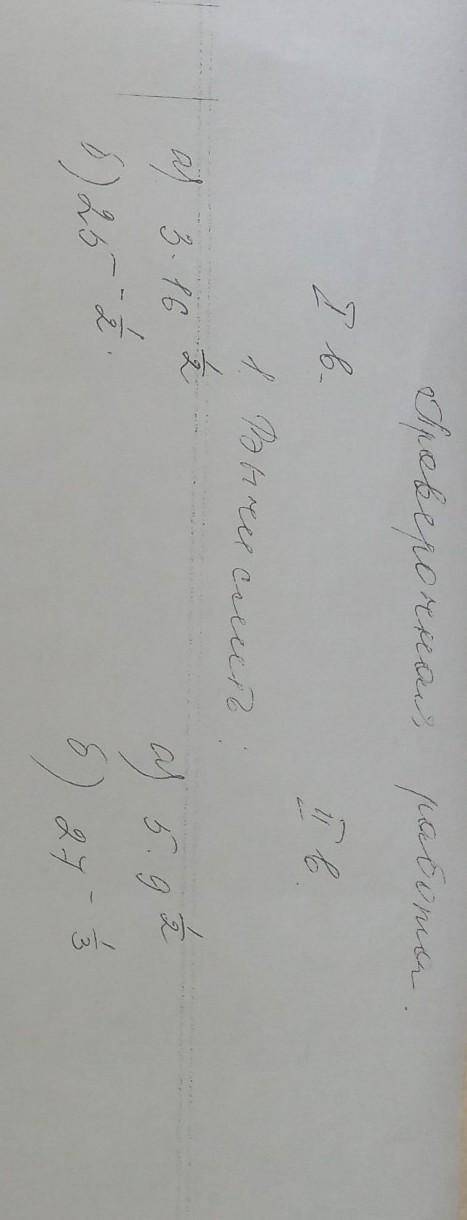 Проверочная работа.
I в. II в.
1. Вычислить:
а) 3·16^(1/2) а) 5·9^(1/2)
б) 25^(-1/2). б) 27^(-1/3)